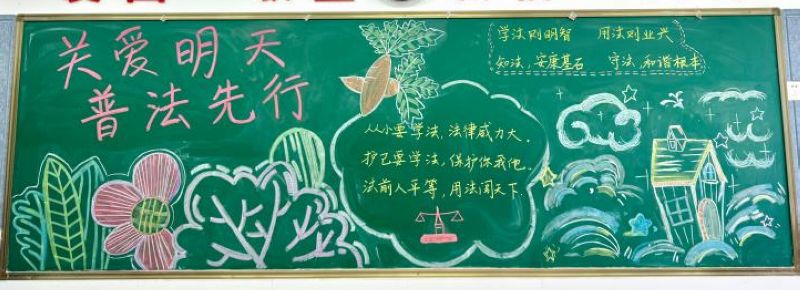 关爱明天
普法先行
学法则明智 用法则业兴
知法,安康基石 守法,和谐根本
从小要学法,法律威力大。
护己要学法,保护你我他。
法前人平等,用法闯天下.